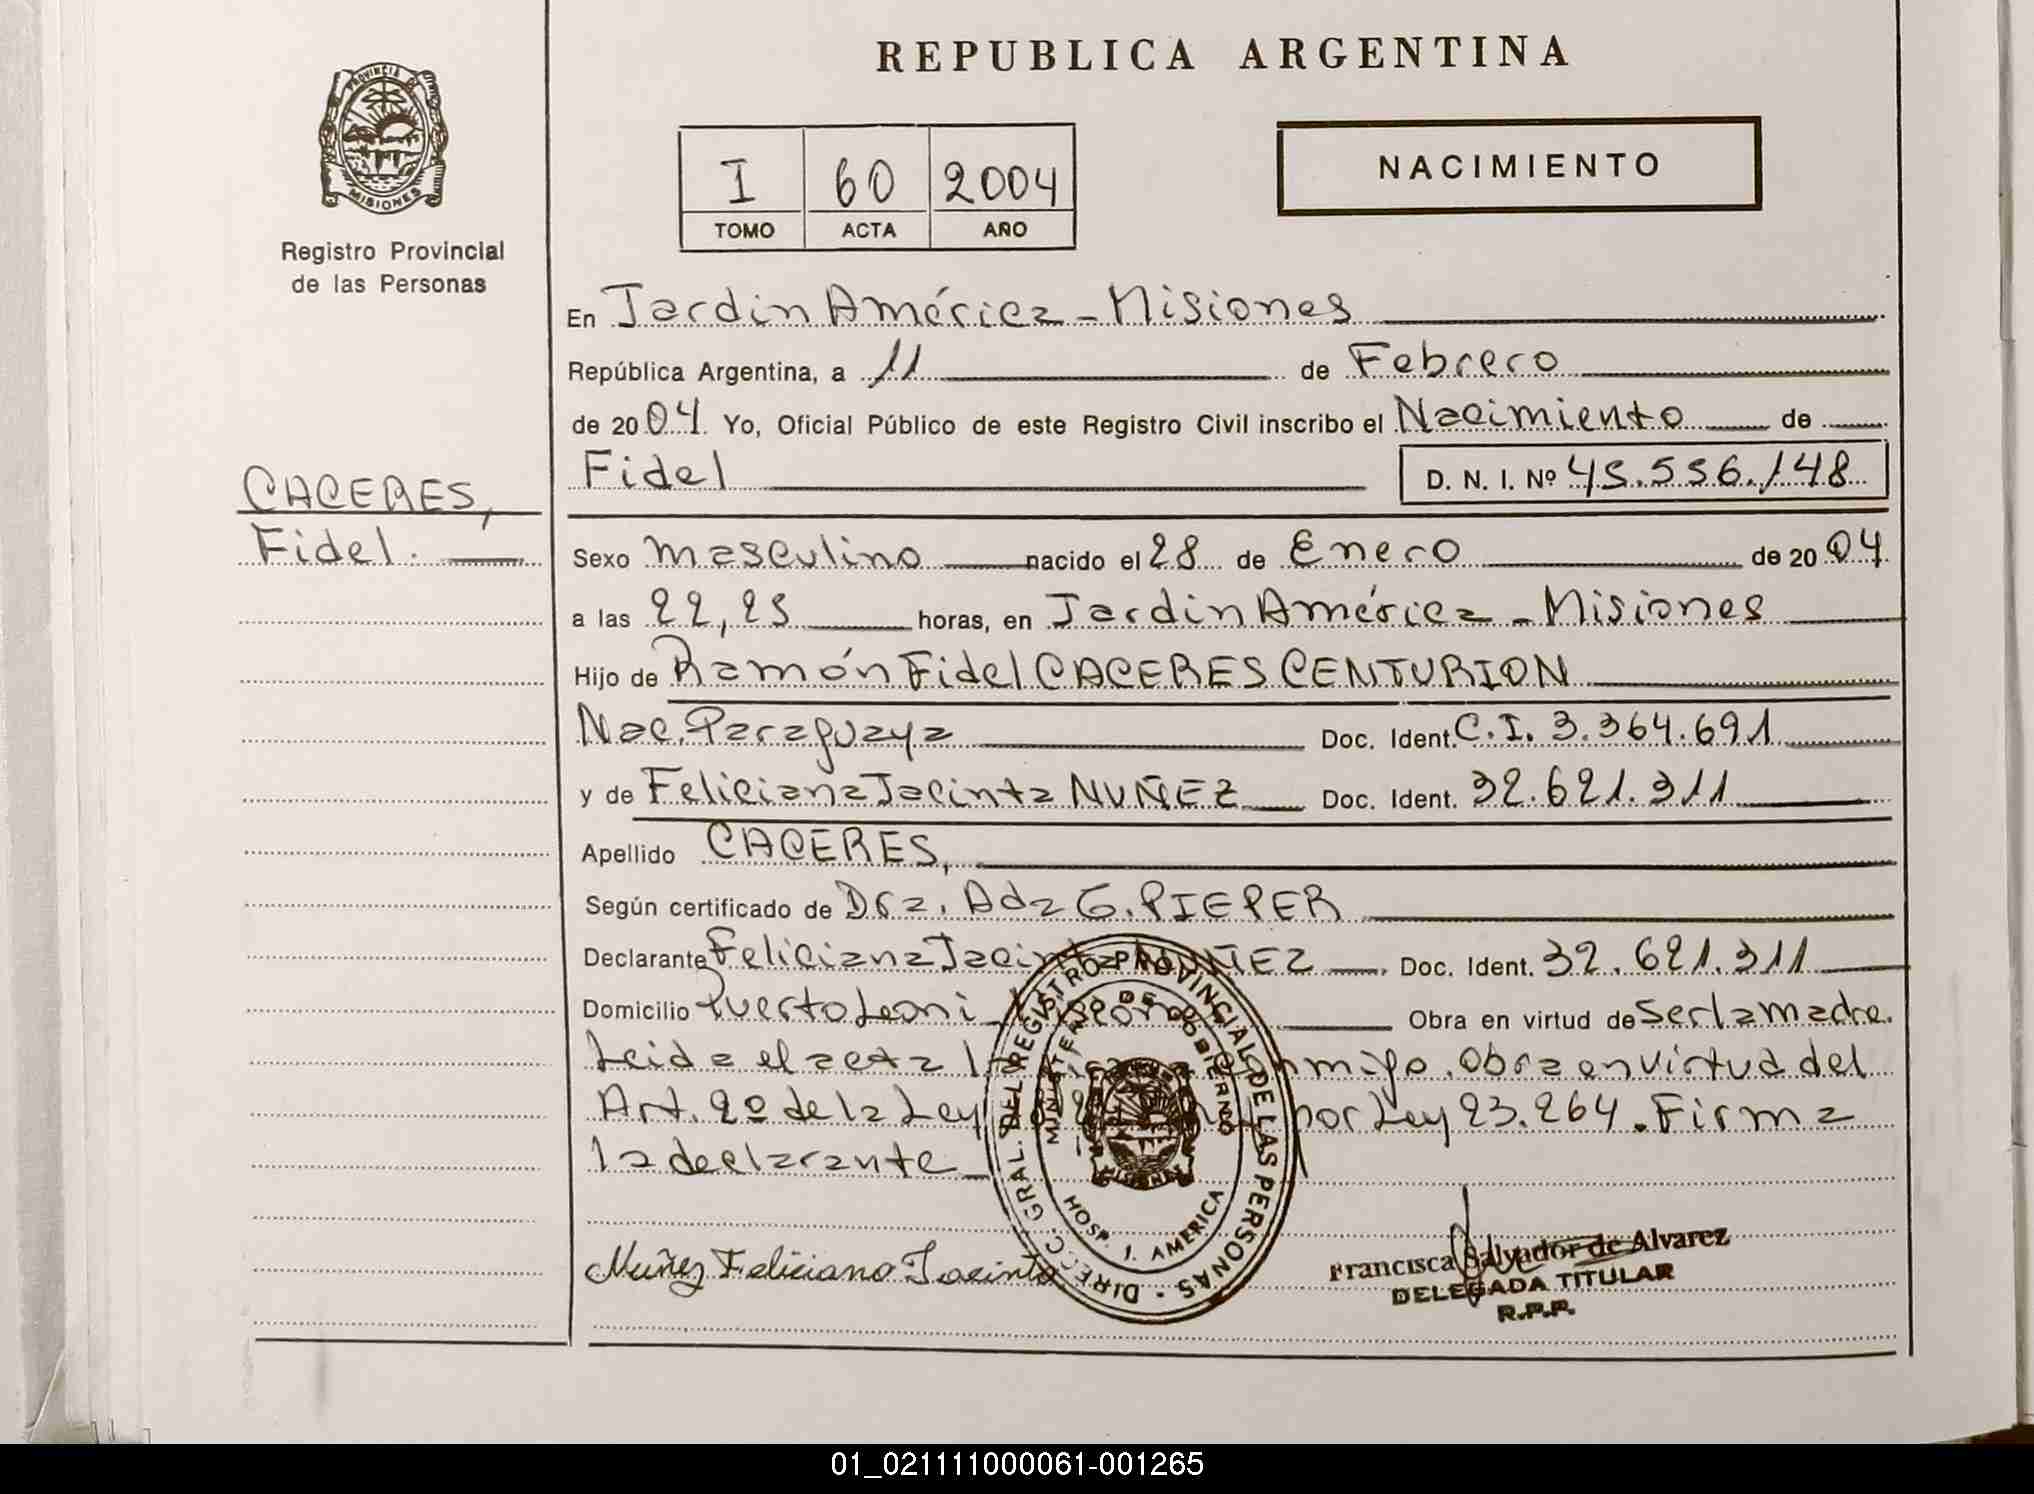 REPUBLICA ARGENTINA
PROVINCIA DE
MISIONES
Registro Provincial
de las Personas
I 60 2004
TOMO ACTA AÑO
NACIMIENTO
En Jardin América - Misiones
República Argentina, a 11 de Febrero
de 2004 Yo, Oficial Público de este Registro Civil inscribo el Nacimiento de
Fidel D. N. I. Nº 45.556.148
CACERES,
Fidel.
Sexo masculino nacido el 28 de Enero de 2004
a las 22,25 horas, en Jardin América - Misiones
Hijo de Ramón Fidel CACERES CENTURION
Nac. Paraguaya Doc. Ident. C.I. 3.364.691
y de Feliciana Jacinta NUÑEZ Doc. Ident. 32.621.311
Apellido CACERES,
Según certificado de Dra. Ada G. PIEPER
Declarante Feliciana Jacinta NUÑEZ Doc. Ident. 32.621.311
Domicilio Puerto Leoni - Misiones Obra en virtud de ser la madre.
Leida el acta la conmigo. Obra en virtud del
Art. 2º de la Ley por Ley 23.264. Firma
la declarante
DIRECC. GRAL. DEL REGISTRO PROVINCIAL DE LAS PERSONAS
MINISTERIO DE GOBIERNO
MISIONES
HOSP. J. AMERICA
Nuñez Feliciana Jacinta
Francisca Salvador de Alvarez
DELEGADA TITULAR
R.P.P.
01_021111000061-001265